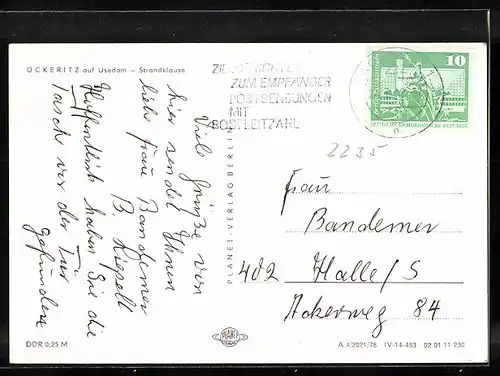 ÜCKERITZ auf Usedom – Strandklause
Viele Grüße von
hier sendet Ihnen
liebe Frau Bandemer
B. Liepelt
Hoffentlich haben Sie die
Tasche vor der Tür
gefunden
DDR 0,25 M
PLANET-VERLAG BERLIN
PLANET
ZUM EMPFÄNGER
POSTSENDUNGEN
MIT
POSTLEITZAHL
10
DEUTSCHE DEMOKRATISCHE REPUBLIK
2235
Frau
Bandemer
402 Halle/S
Ackerweg 84
A 4/2021/78 IV-14-483 02 01 11 230